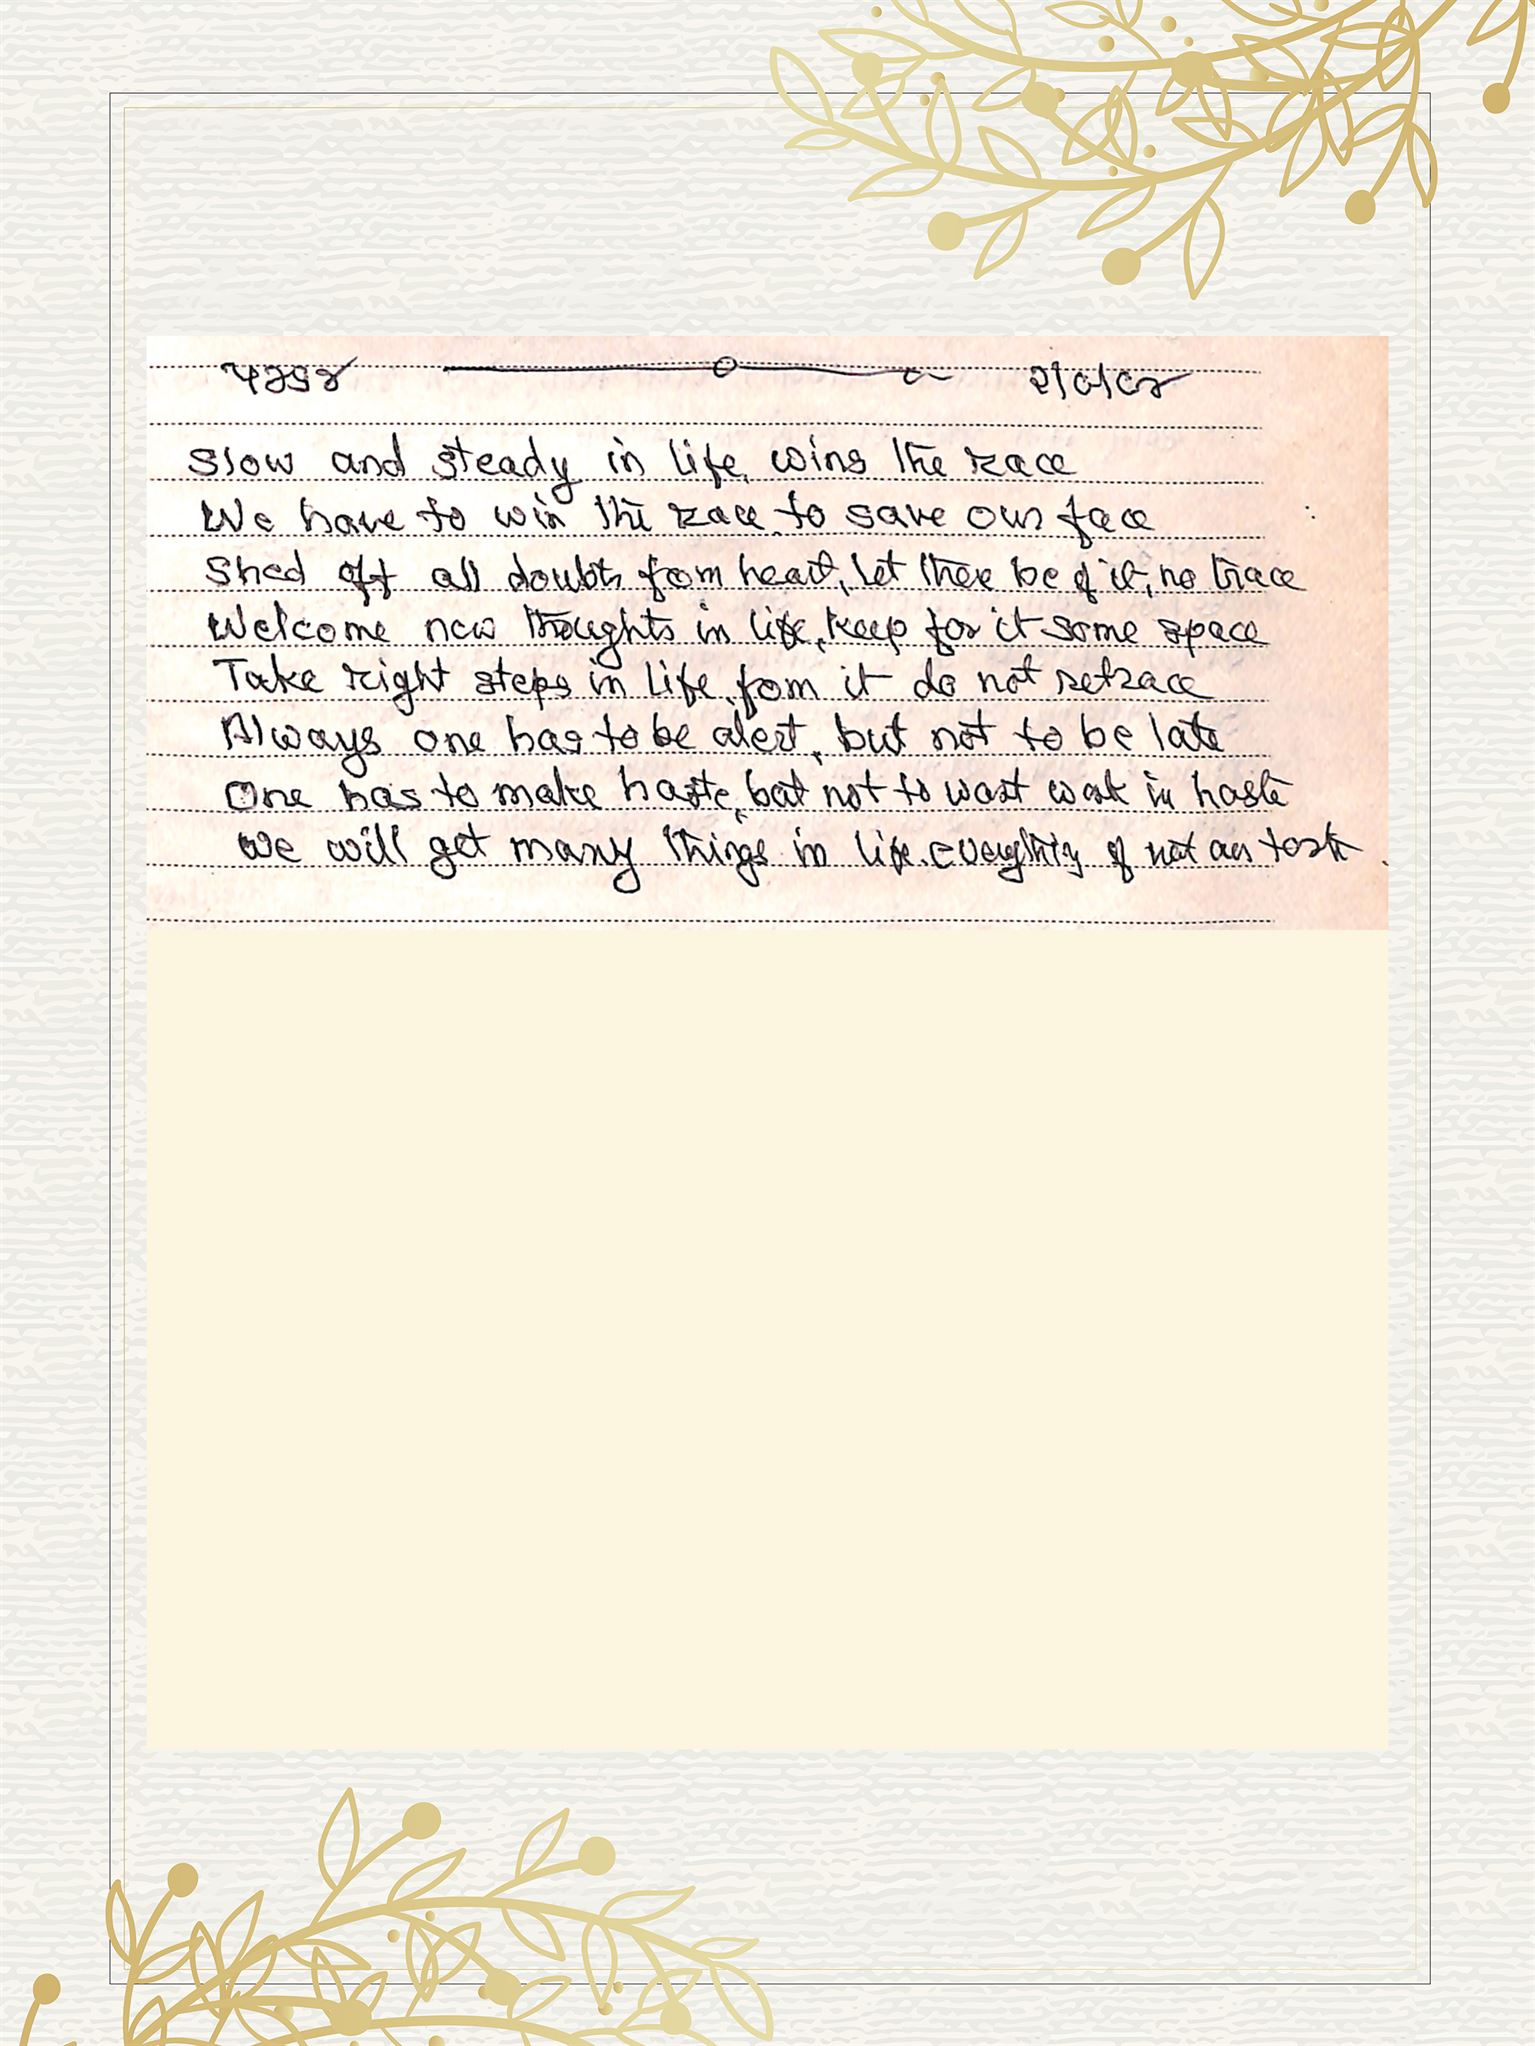 Slow and steady in life, wins the race
We have to win the race, to save our face
Shed off all doubts from heart, let there be of it, no trace
Welcome new thoughts in life, keep for it some space
Take right steps in life, from it do not retrace
Always one has to be alert, but not to be late
One has to make haste, but not to wast work in haste
We will get many things in life. everything of not our